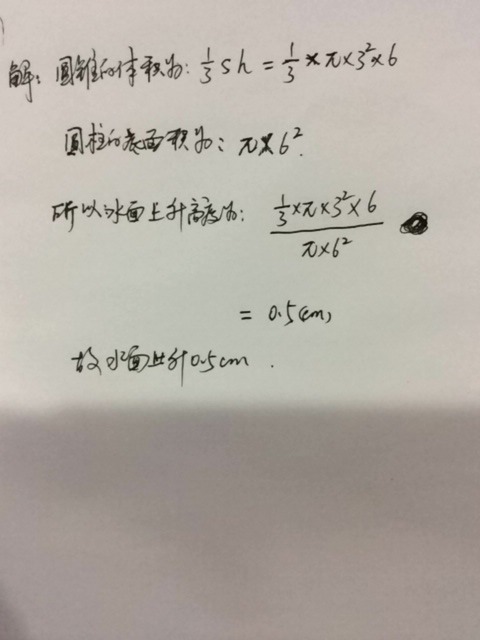 解：圆锥的体积为：1/3 sh = 1/3 × π × 3² × 6
圆柱的底面积为：π × 6².
所以水面上升高度为：(1/3 × π × 3² × 6) / (π × 6²)
= 0.5cm,
故水面上升0.5cm.